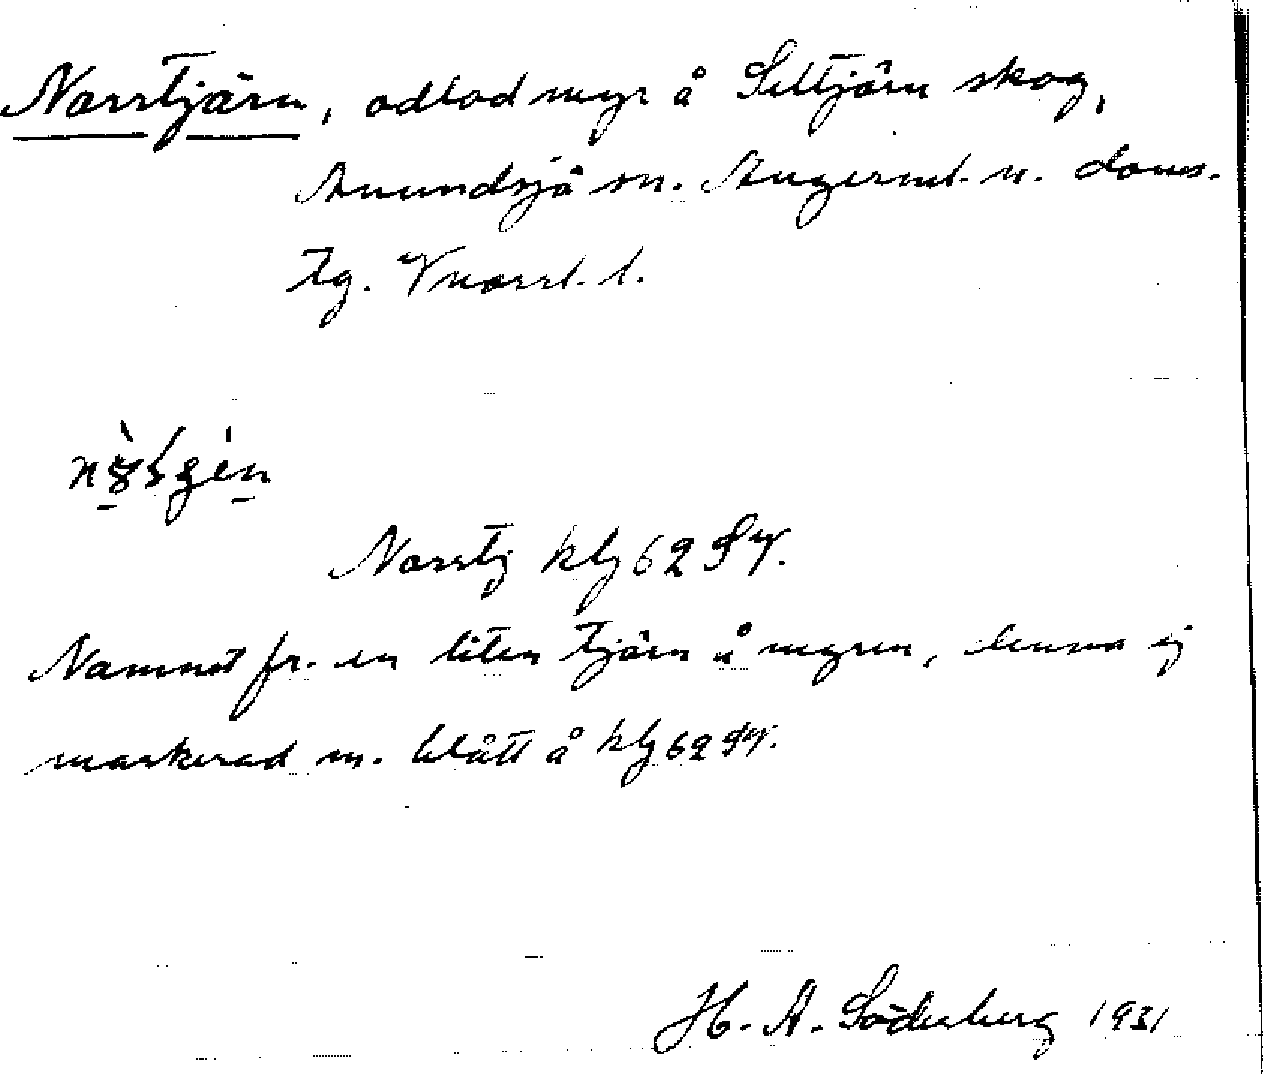 Norrtjärn, odlad myr å Seltjärn skog,
Anundsjö sn. Ångerml. n. doms.
tg. Vnorrl. l.
Norrtj klj 62 SV.
Namnet fr. en liten tjärn å myren, denna ej
markerad m. blått å klj 62 SV.
H. A. Söderberg 1931